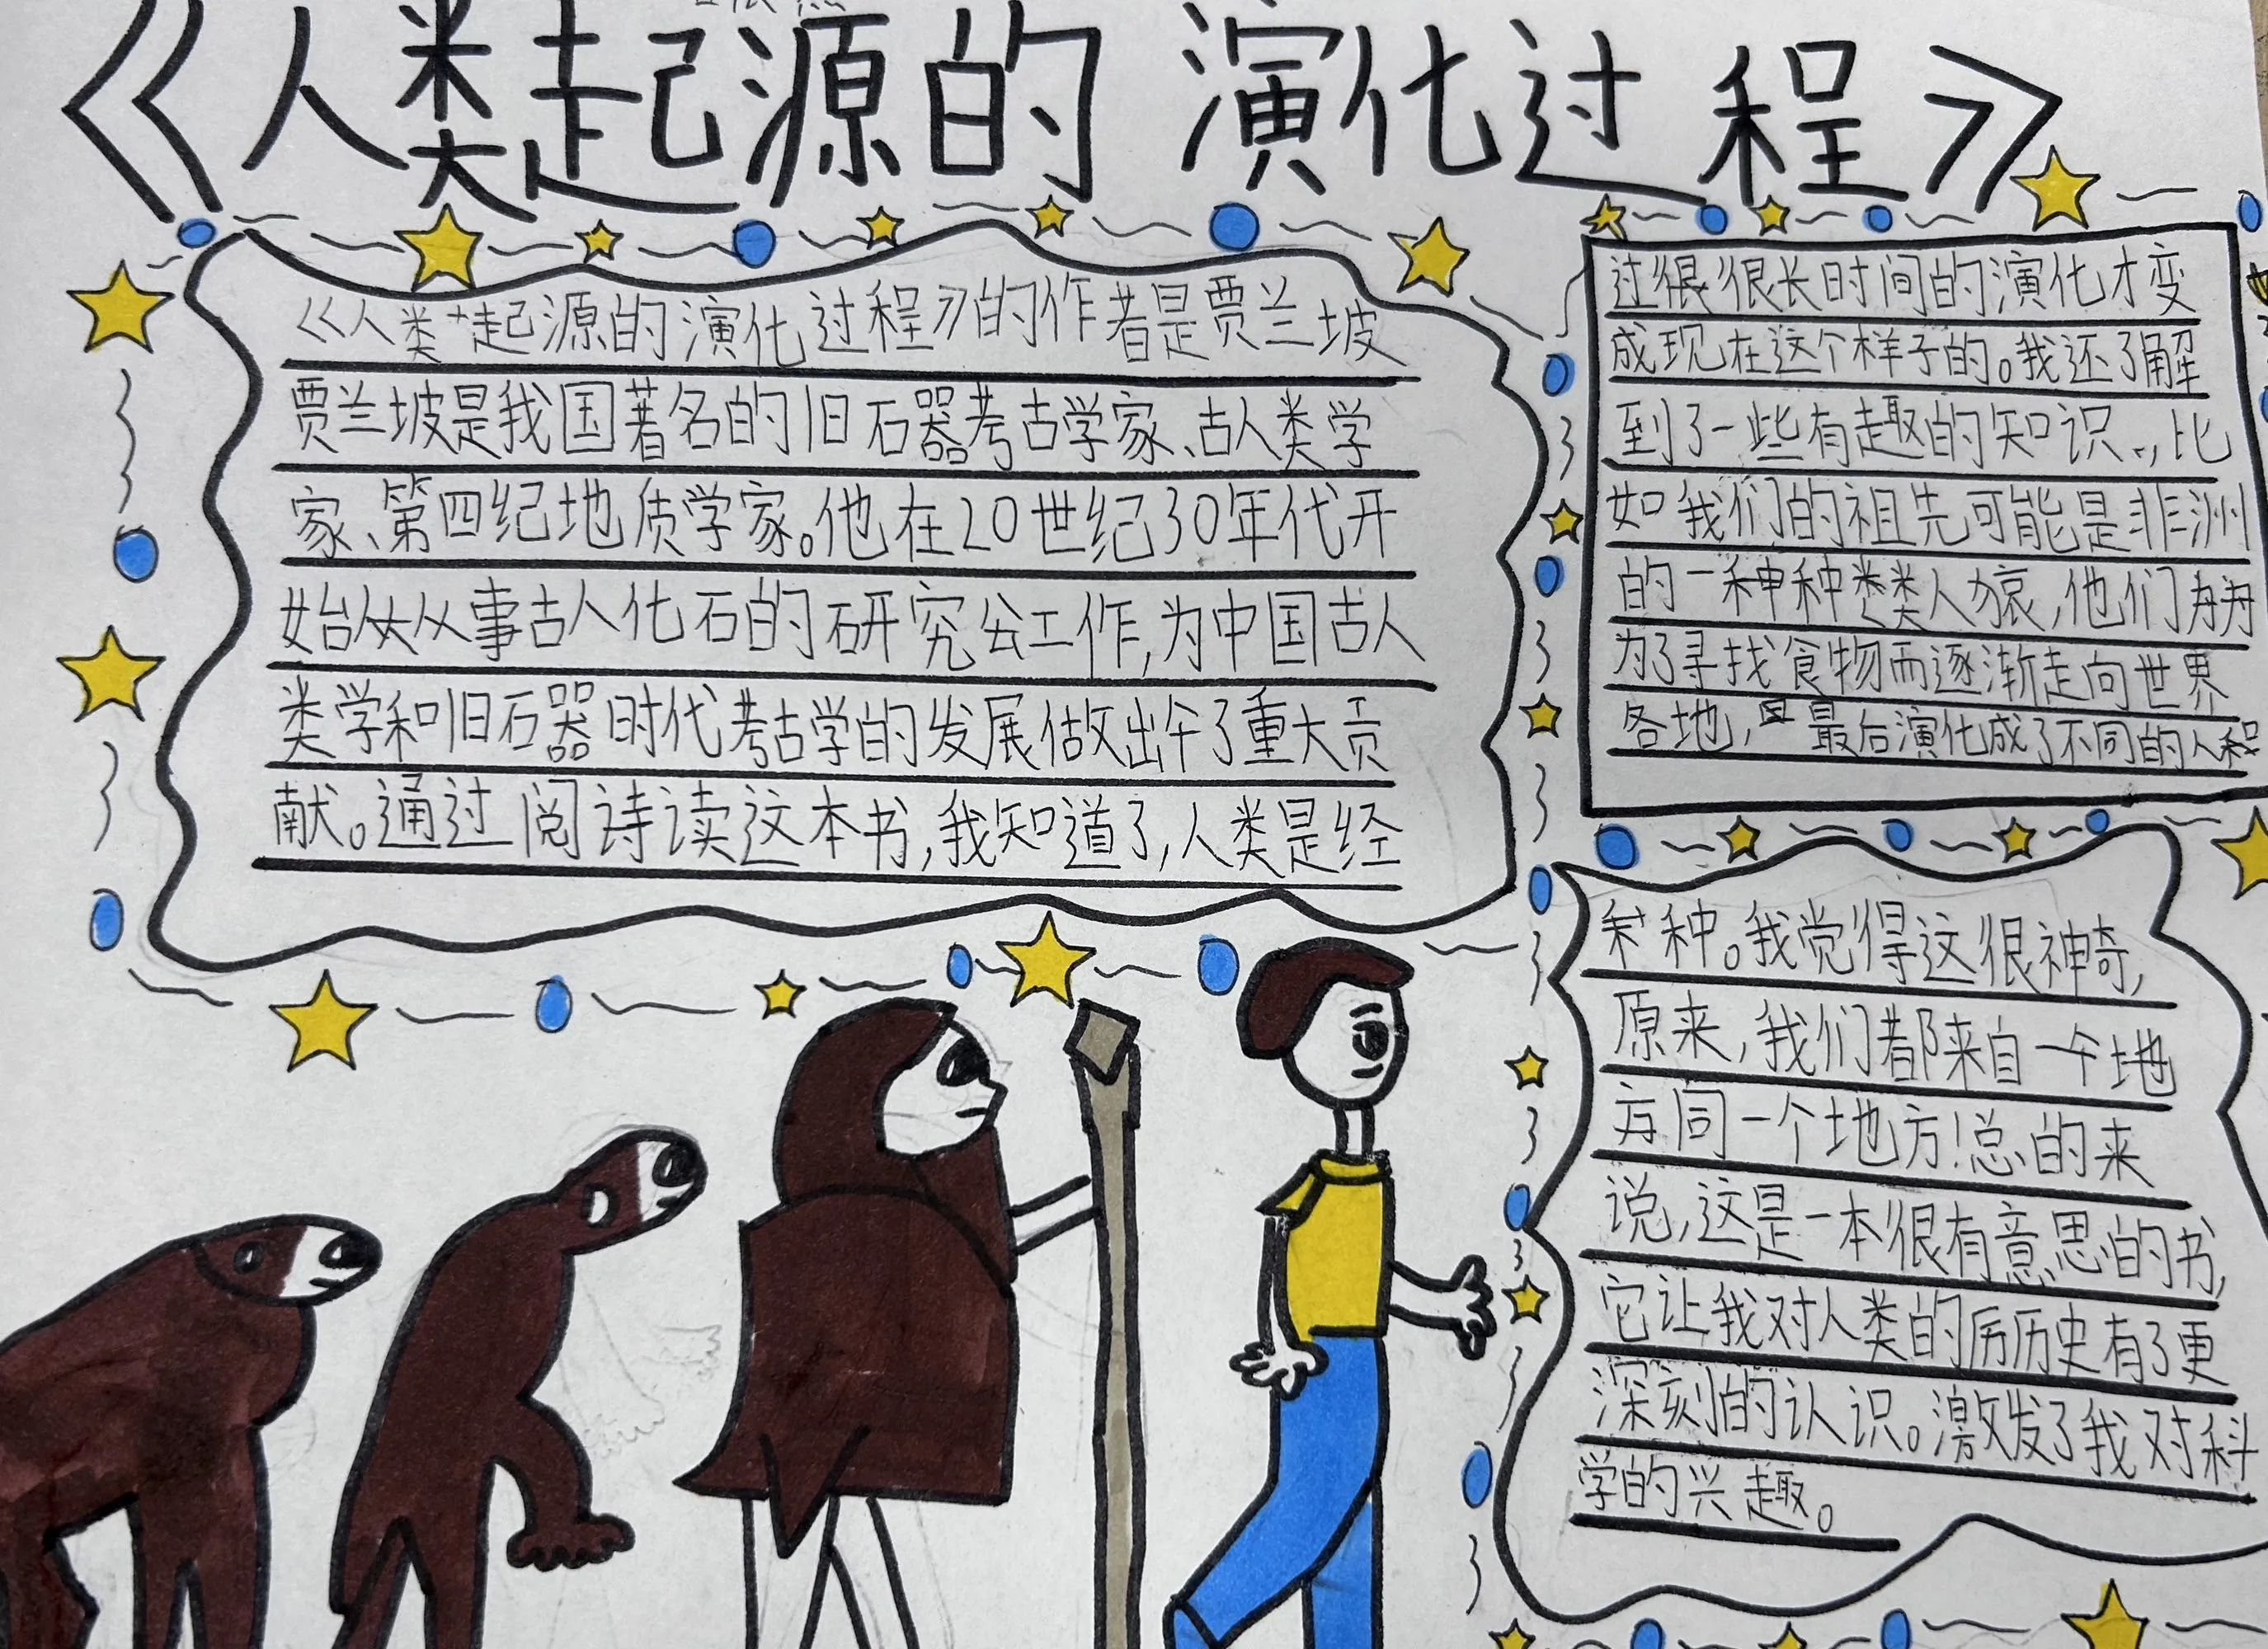 《人类起源的演化过程》
《人类起源的演化过程》的作者是贾兰坡
贾兰坡是我国著名的旧石器考古学家、古人类学
家、第四纪地质学家。他在20世纪30年代开
始从从事古人化石的研究工作,为中国古人
类学和旧石器时代考古学的发展做出了重大贡
献。通过阅读这本书,我知道了,人类是经
过很很长时间的演化才变
成现在这个样子的。我还了解
到了一些有趣的知识.,比
如我们的祖先可能是非洲
的一种种类类人猿,他们
为了寻找食物而逐渐走向世界
各地,最后演化成了不同的人种
种。我觉得这很神奇,
原来,我们都来自一个地
方同一个地方!总的来
说,这是一本很有意思的书,
它让我对人类的历历史有了更
深刻的认识。激发了我对科
学的兴趣。